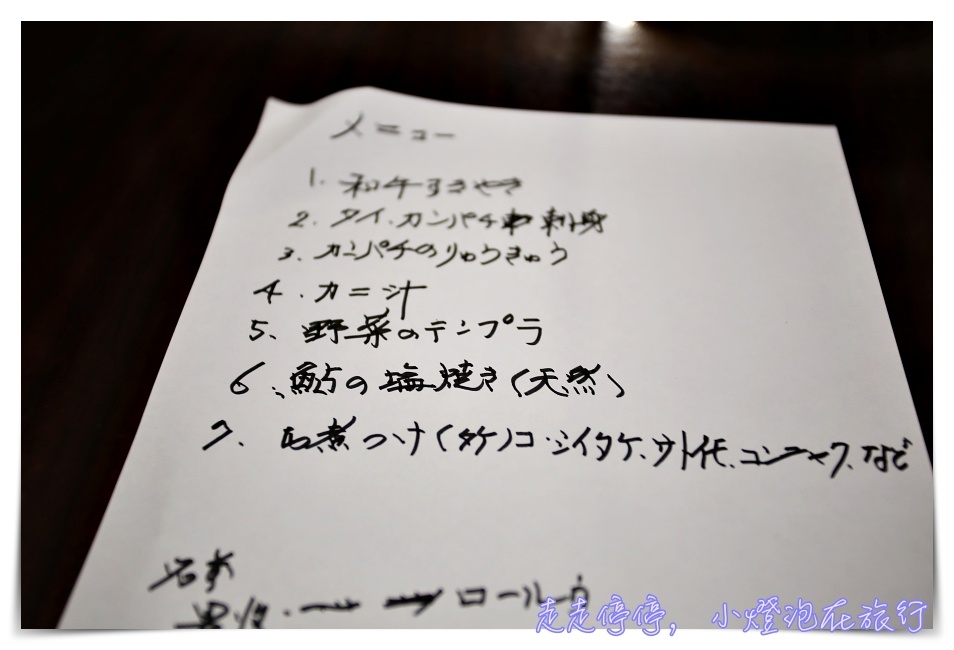 メニュー
1. 和牛すきやき
2. タイ、カンパチ 刺身
3. カンパチのりゅうきゅう
4. カニ汁
5、野菜のテンプラ
6、鮎の塩焼き(天然)
7. 煮つけ(タケノコ・シイタケ、サト代、コンニャク、など
ロール
走走停停,小燈泡在旅行